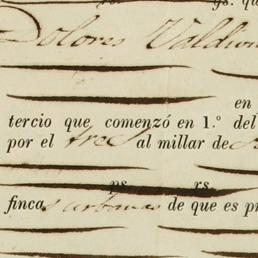 ps. gs. qu
Dolores Valdivi
en
tercio que comenzó en 1.° del
por el tres al millar de
ps. rs.
fincas urbanas de que es pr